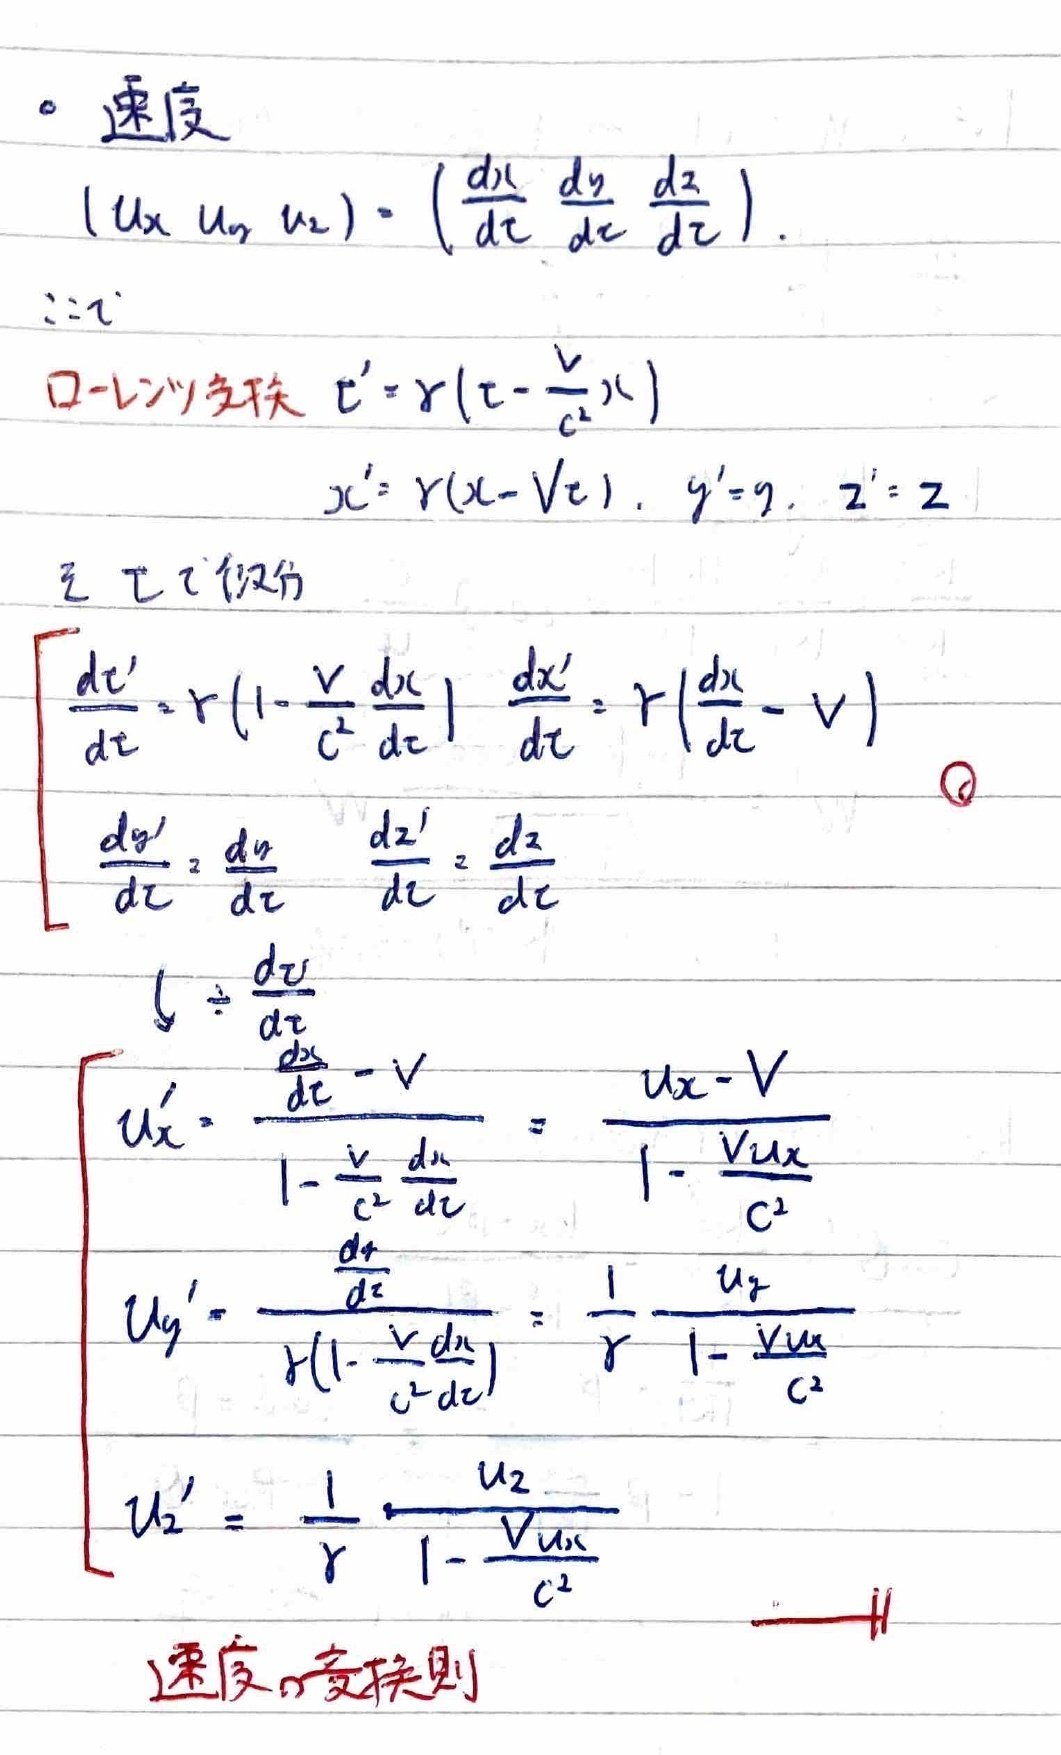 。速度
(ux uy uz) = (dx/dt dy/dt dz/dt).
ここで
ローレンツ変換 t' = γ(t - V/c² x)
x' = γ(x - Vt). y' = y. z' = z
を tで微分
dt'/dt = γ(1 - V/c² dx/dt) dx'/dt = γ(dx/dt - V)
dy'/dt = dy/dt dz'/dt = dz/dt
÷ dt'/dt
ux' = (dx/dt - V)/(1 - V/c² dx/dt) = (ux - V)/(1 - Vux/c²)
uy' = (dy/dt)/(γ(1 - V/c² dx/dt)) = 1/γ uy/(1 - Vux/c²)
uz' = 1/γ · uz/(1 - Vux/c²)
速度の変換則